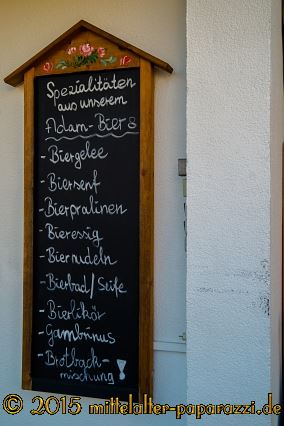 Spezialitäten
aus unserem
Adam-Bier
- Biergelee
- Biersenf
- Bierpralinen
- Bieressig
- Biernudeln
- Bierbad/Seife
- Bierlikör
- Gambrinus
- Brotback-
mischung !
© 2015 mittelalter-paparazzi.de